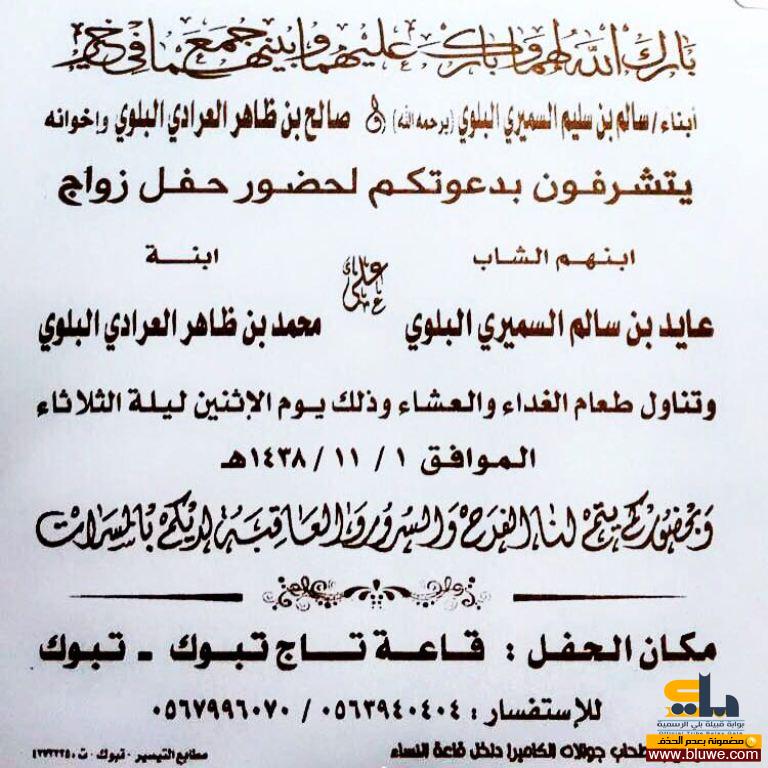 بارك الله لهما وبارك عليهما وجمع بينهما في خير
أبناء / سالم بن سليم السميري البلوي (يرحمه الله) و صالح بن ظاهر العرادي البلوي وإخوانه
يتشرفون بدعوتكم لحضور حفل زواج
ابنهم الشاب
ابنة
عايد بن سالم السميري البلوي
على
محمد بن ظاهر العرادي البلوي
وتناول طعام الغداء والعشاء وذلك يوم الإثنين ليلة الثلاثاء
الموافق ١ / ١١ / ١٤٣٨هـ
وبحضوركم يتم لنا الفرح والسرور والعاقبة لديكم بالمسرات
مكان الحفل : قاعة تاج تبوك - تبوك
للإستفسار : ٠٥٦٣٩٤٠٤٠٤ / ٠٥٦٧٩٩٦٠٧٠
جوالات الكاميرا داخل قاعة النساء
مطابع التيسير - تبوك - ت
بلي
بوابة قبيلة بلي الرسمية
مضمونة بعدم الحذف
www.bluwe.com